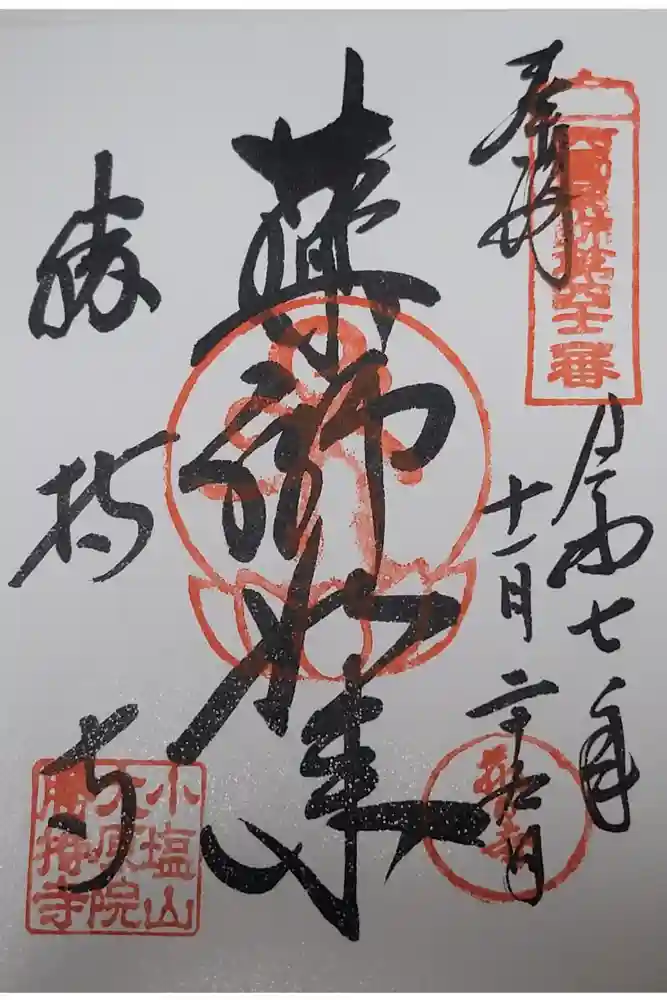 奉拝
令和七年
十一月二十
薬師如来
勝持寺
小塩山
大原院
勝持寺